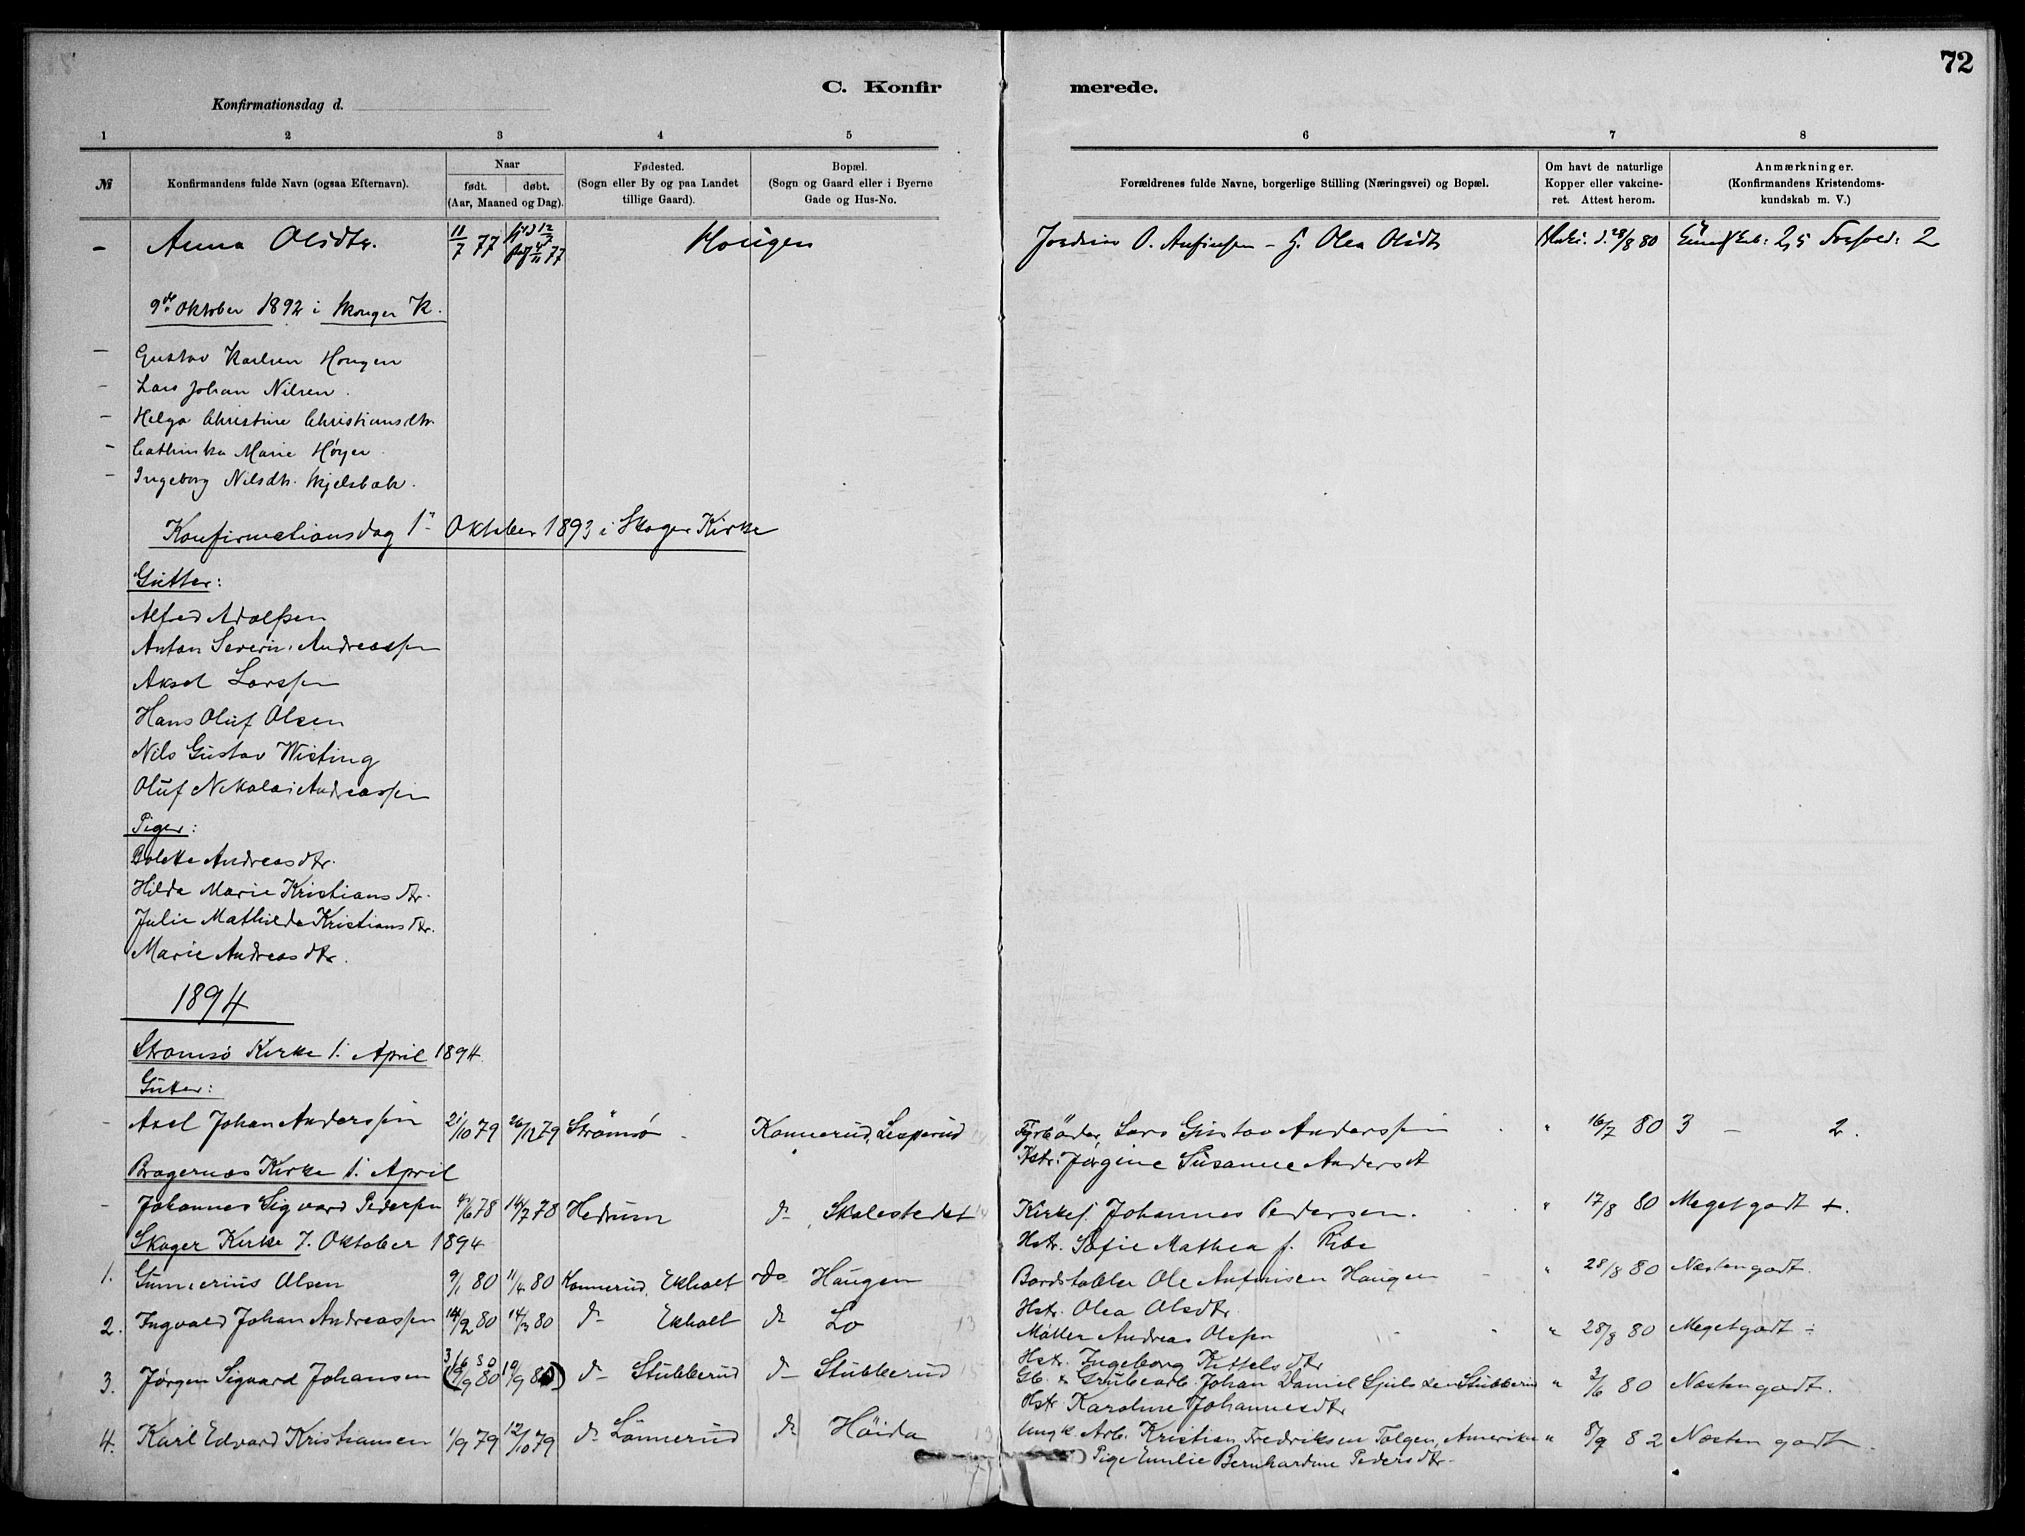 72
C. Konfir merede.
Konfirmationsdag d.
1 2 3 4 5 6 7 8
№ Konfirmandens fulde Navn (ogsaa Efternavn). Naar født. døbt. (Aar, Maaned og Dag). Fødested. (Sogn eller By og paa Landet tillige Gaard). Bopæl. (Sogn og Gaard eller i Byerne Gade og Hus-No. Forældrenes fulde Navne, borgerlige Stilling (Næringsvei) og Bopæl. Om havt de naturlige Kopper eller vakcineret. Attest herom. Anmærkninger. (Konfirmandens Kristendomskundskab m. V.)
– Anna Olsdtr. 11/7 77 4/11 77 Hougen O. Anfinsen – H. Olea Olsdtr d. 28/8 80 2,5 2
9de Oktober 1892 i Skouger K.
– Gustav Karlsen Hougen
– Lars Johan Nilsen.
– Helga Christine Christiansdtr.
– Cathinka Marie Høyer.
– Ingeborg Nilsdtr.
Konfirmationsdag 1ste Oktober 1893 i Skoger Kirke
Gutter:
Alfred Adolfsen
Anton Severin Andreassen
Aksel Larssen
Hans Oluf Olsen
Nils Gustav Wisting
Oluf Nikolai Andreassen
Piger:
Bolette Andreasdtr.
Hilda Marie Kristiansdtr.
Julie Mathilde Kristiansdtr.
Marie Andreasdtr.
1894
Strømsø Kirke 1. April 1894
Gutter:
– Axel Johan Anderssen 21/10 79 26/12 79 Strömsö Konnerud, Lesperud Fyrbøder Lars Gustav Anderssen " 16/7 80 3 – 2.
Hstr. Jørgine Susanne Andersdt
Bragernæs Kirke 1. April
– Johannes Sigvard Pedersen 4/6 78 14/7 78 Hedrum do Skalestedet 14 Kirkes. Johannes Pedersen. " 17/8 80 Meget godt +.
Hstr. Sofie Mathea f. Ribe
Skoger Kirke 7. Oktober 1894
1. Gunnerius Olsen 9/1 80 11/4 80 Konnerud, Ekholt do Haugen 13 Bordstabler Ole Anfinsen Haugen " 28/8 80 Næsten godt.
Hstr. Olea Olsdtr.
2. Ingvald Johan Andreassen 14/2 80 14/3 80 do Ekholt do Lo 13 Møller Andreas Olssen " 28/8 80 Meget godt ÷
Hstr. Ingeborg Kittelsdtr
3. Jørgen Sigvard Johansen 3/6 80 (19/9 80 19/9 80) do Stubberud do Stubberud 15 Gb. & Grubearb. Johan Daniel Stubberud " 3/6 80 Næsten godt.
Hstr Karoline Johannesdtr
4. Karl Edvard Kristiansen 1/9 79 12/10 79 do Lönnerud do Høida 13 Ungk. Arb. Kristian Fredriksen Tolgen, Amerika " 8/9 82 Næsten godt.
Pige Emilie Bernhardine Pedersdtr.